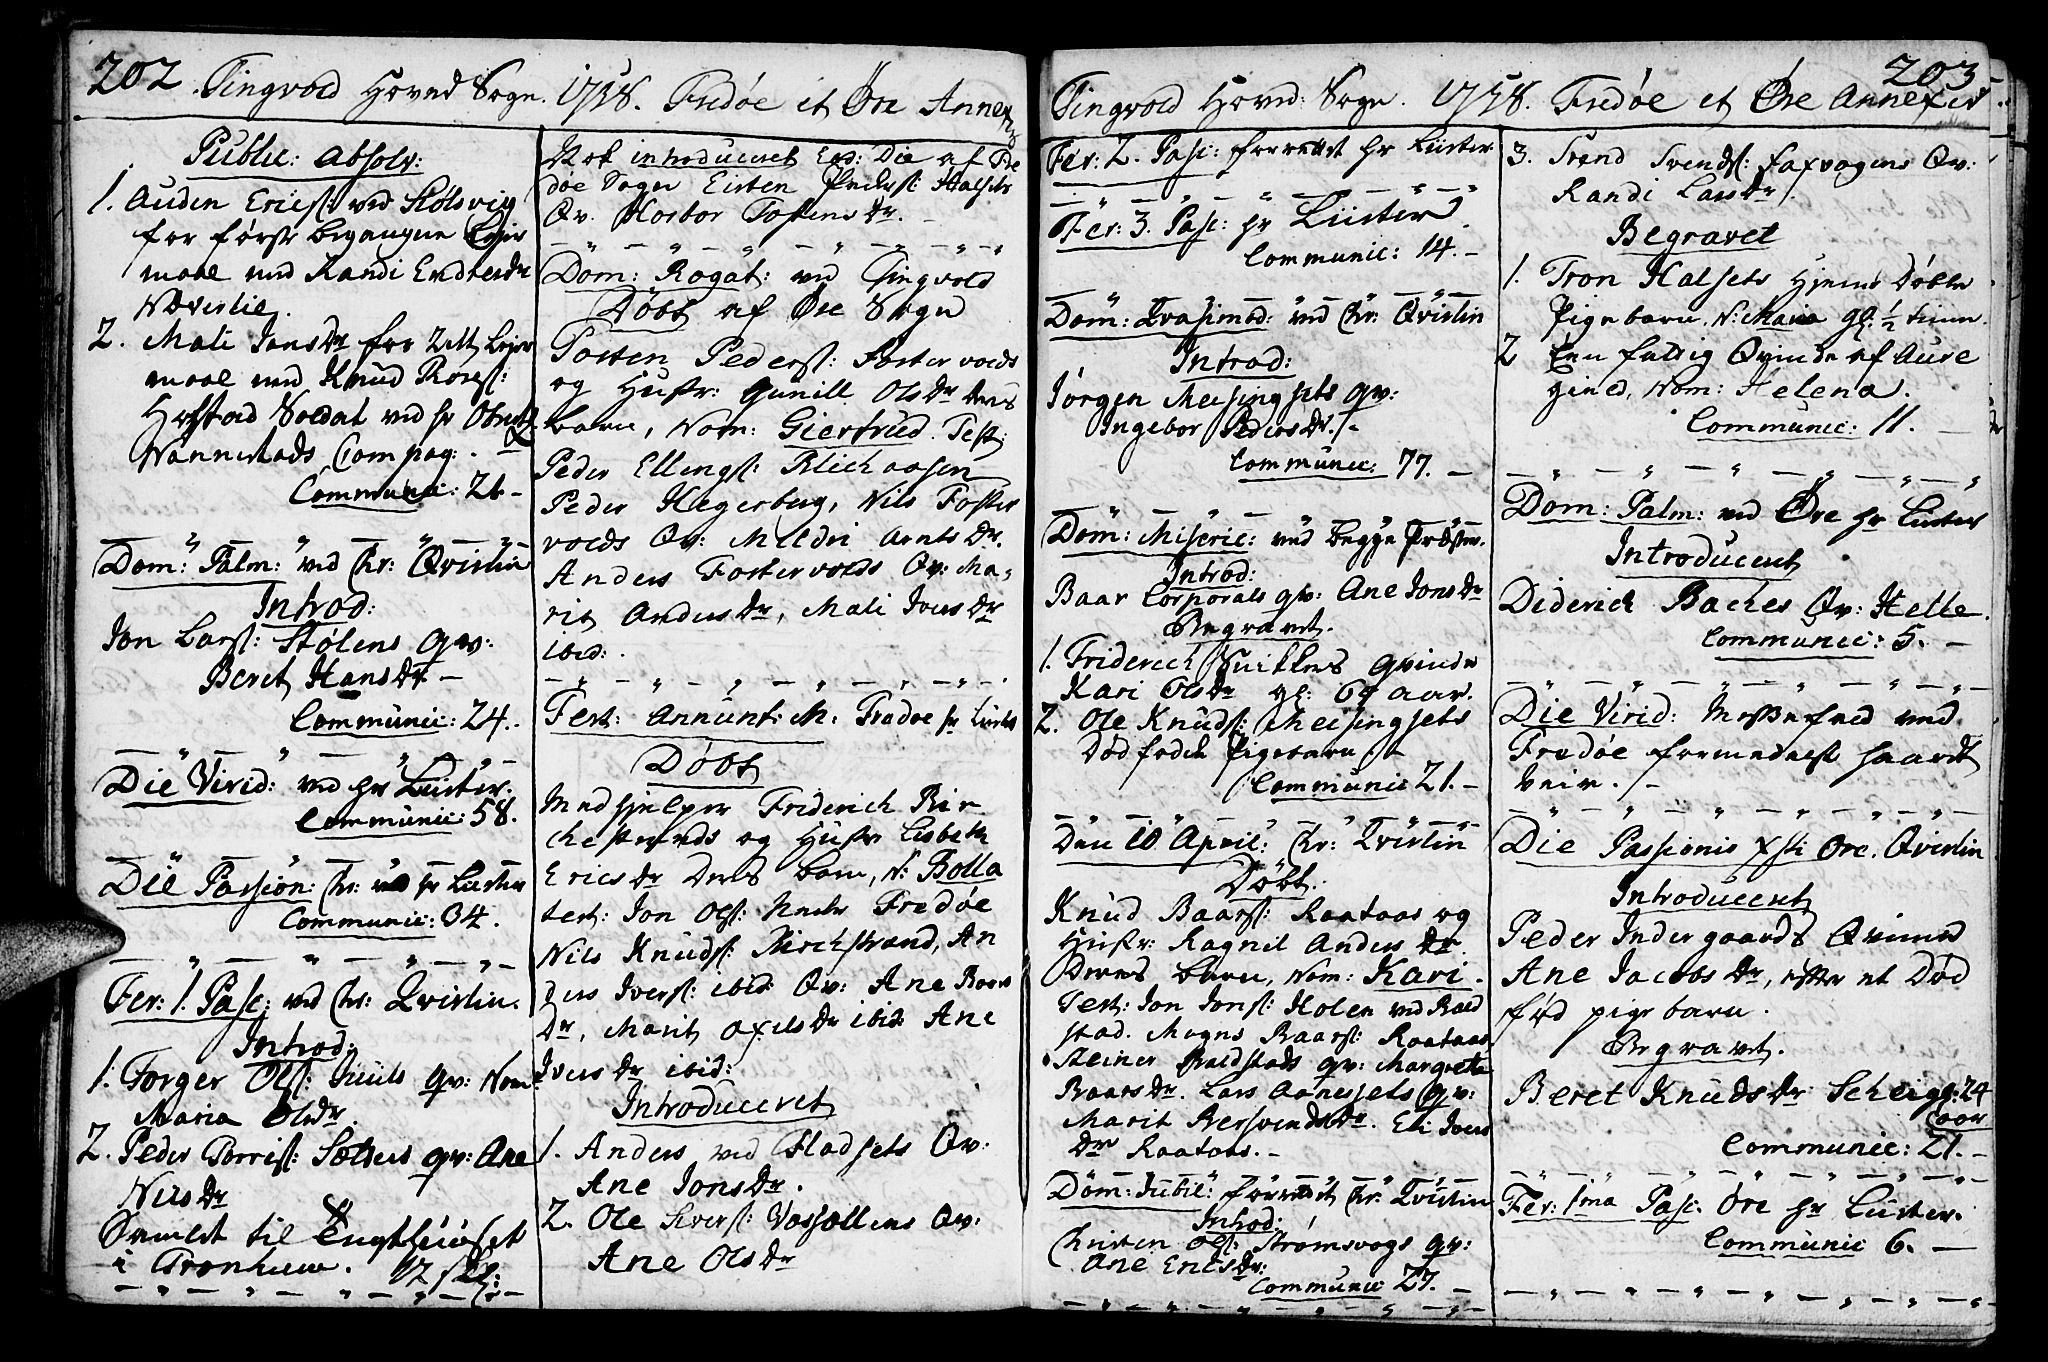 202. Tingvold Hoved Sogn. 1758. Fredøe et Øre Annex
Public: Absolv:
1. Auden Erics: ved Stølsvig
for første begangne Leier
maal med Randi Endresdr
Neverlie.
2. Mali Jonsdr for 2det Leier
maal med Knud Roess:
Hofstad Soldat ved hr
Nannestads Compag: . -
Communic: 21 -
Dom: Palm: ved Chr: Qvistin
Introd:
Jon Lars: Stølens qv:
Beret Hansdr -
Communic: 24.
Die Virid: ved hr Lüster.
Communic: 58.
Die Passion: Chr: ved hr Lüster
Communic: 34.
Fer: 1. Pasc: ved Chr: Qvistin.
Introd:
1. Torger Ols: Juuls qv: Nom
Maria Olsdr.
2. Peder Porris: Sæters qv: Ane
Nilsdr
Samlet til Tugthuuset
i Tronhiem. 12 sk:
Nok introduceret Eod: Die af Fre
døe Sogn Eisten Peders: Halsets
Qv. Horbor Tostensdr. -
Dom: Rogat: ved Tingvold
Døbt af Øre Sogn
Tosten Peders: Fostervolds
og Hustr: Gunill Olsdr deres
barn, Nom: Giertrud. Test:
Peder Ellings: Blichaasen
Peder Hegerberg, Nils Foster
volds Qv: Mildri Arntsdr.
Anders Fostervolds Qv: Ma,
rit Andersdr, Mali Iversdr
ibid: .
Fest: Annunt: M: Fredøe hr Lüster
Døbt
Medhjelper Friderich Bir
chestrands og Hustr Lisbeth
Ericsdr Deres Barn, N: Bolla
test: Jon Ols: Nedr Fredøe
Nils Knuds: Birchstrand, An
ders Ivers: ibid Qv: Ane Baars
Dr, Marit Axelsdr ibid Ane
Iversdr ibid:
Introduceret
1. Anders ved Stadsets Qv:
Ane Jonsdr.
2. Ole Sivers: Vassøllens Qv:
Ane Olsdr
203
Tingvold Hoved: Sogn. 1758. Fredøe et Øre Annexer
Fer: 2. Pasc: forrettet hr Lüster
Fer: 3. Pasc: hr Lüster
Communic: 14. -
Dom: Qvasimod: ved Chr: Qvistin
Introd:
Jørgen Meisingsets qv:
Ingebor Pedersdr. /-
Communic: 77. -
Dom: Miseric: ved begge Præster.
Introd:
Baar Corporals qv: Ane Jonsdr
Begravet.
1. Friderich Snikkers qvinde
Kari Olsdr gl: 64 aar.
2. Ole Knuds: Meisingsets
Død fødde Pigebarn /-
Communic 21. -
Den 10 April: Chr: Qvistin
Døbt:
Knud Baars: Raataas og
Hustr: Ragnil Andersdr
Deres barn, Nom: Kari.
Test: Jon Jons: Holen ved Bold
stad. Mogns Baars: Raataas
Steiner Boldstads qv: Margreta
Baarsdr. Lars Aanessets qv:
Marit Bersvendsdr. Eli Ivers
Dr Raataas. -
Dom: Jubil: forrettet Chr: Qvistin
Introd:
Christen Ols: Strømsvogs qv:
Ane Ericsdr:
Communic 27. -
3. Trond Svends: Faxvogens Qv:
Randi Larsdr /.
Begravet
1. Tron Halsets Hjemme Døbte
Pigebarn. N: Maria gl: ½ time.
2 Een fattig Qvinde af Aure
gield, Nom: Helena.
Communic: 11. -
Dom: Palm: ved Øre hr Lüster
Introduceret
Diderich Baches Qv: Helle.
Communic: 5. -
Die Virid: Messefald ved
Fredøe formedelst haardt
Veir. /-
Die Passionis Xsti Øre. Qvistin
Introduceret
Peder Indergaards Qvinde
Ane Jacobsdr, efter et Død
fød pigebarn.
Begravet.
Beret Knudsdr Scheig gl: 24
aar
Communic: 21. -
Fer: 1ma Pasc. Øre hr Lüster.
Communic 6. -